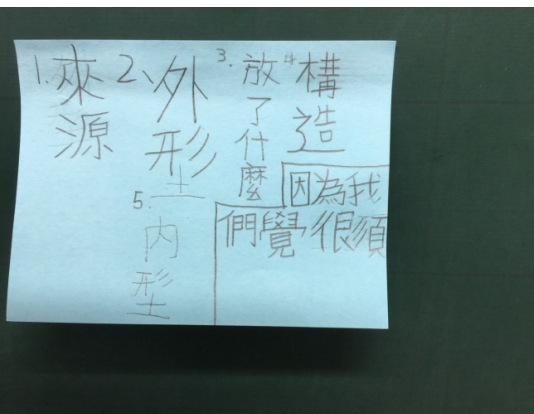 1.來源
2、外形
3.放了什麼
4構造
5.內型
因為我
們覺很須